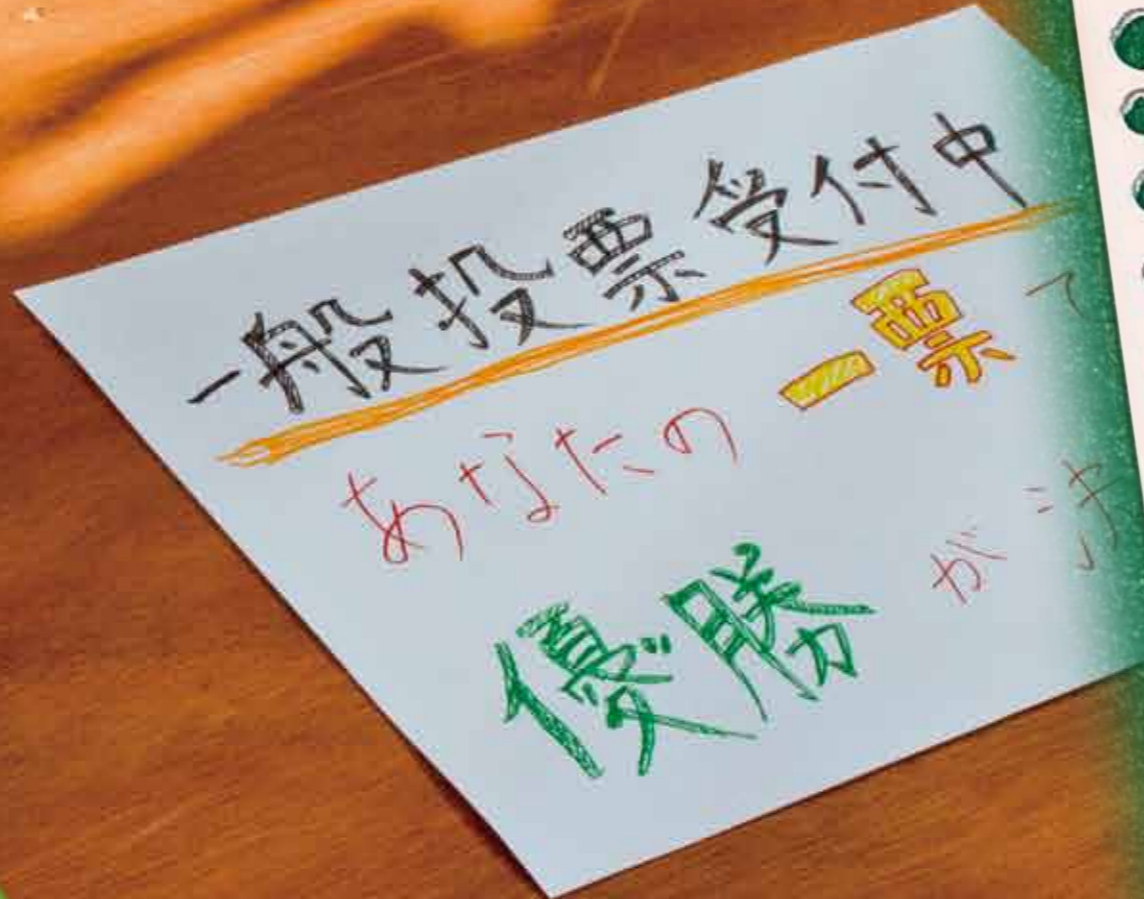 一般投票受付中
あなたの一票で
優勝が決